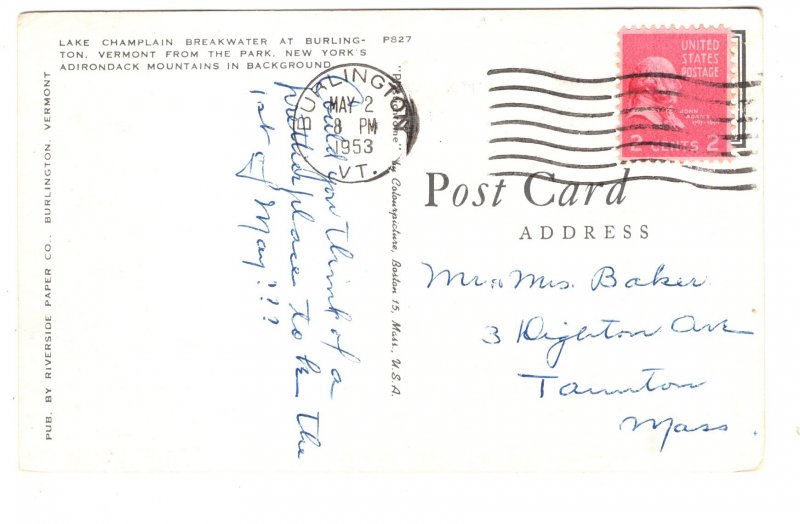 LAKE CHAMPLAIN BREAKWATER AT BURLING-
TON, VERMONT FROM THE PARK. NEW YORK'S
ADIRONDACK MOUNTAINS IN BACKGROUND
P827
PUB. BY RIVERSIDE PAPER CO., BURLINGTON, VERMONT
Could you think of a
prettier place to be the
1st of May???
by Colourpicture, Boston 15, Mass., U.S.A.
BURLINGTON
MAY 2
8 PM
1953
VT.
UNITED
STATES
POSTAGE
JOHN
ADAMS
2 CENTS 2
Post Card
ADDRESS
Mr. & Mrs. Baker
3 Dighton Ave
Taunton
Mass.